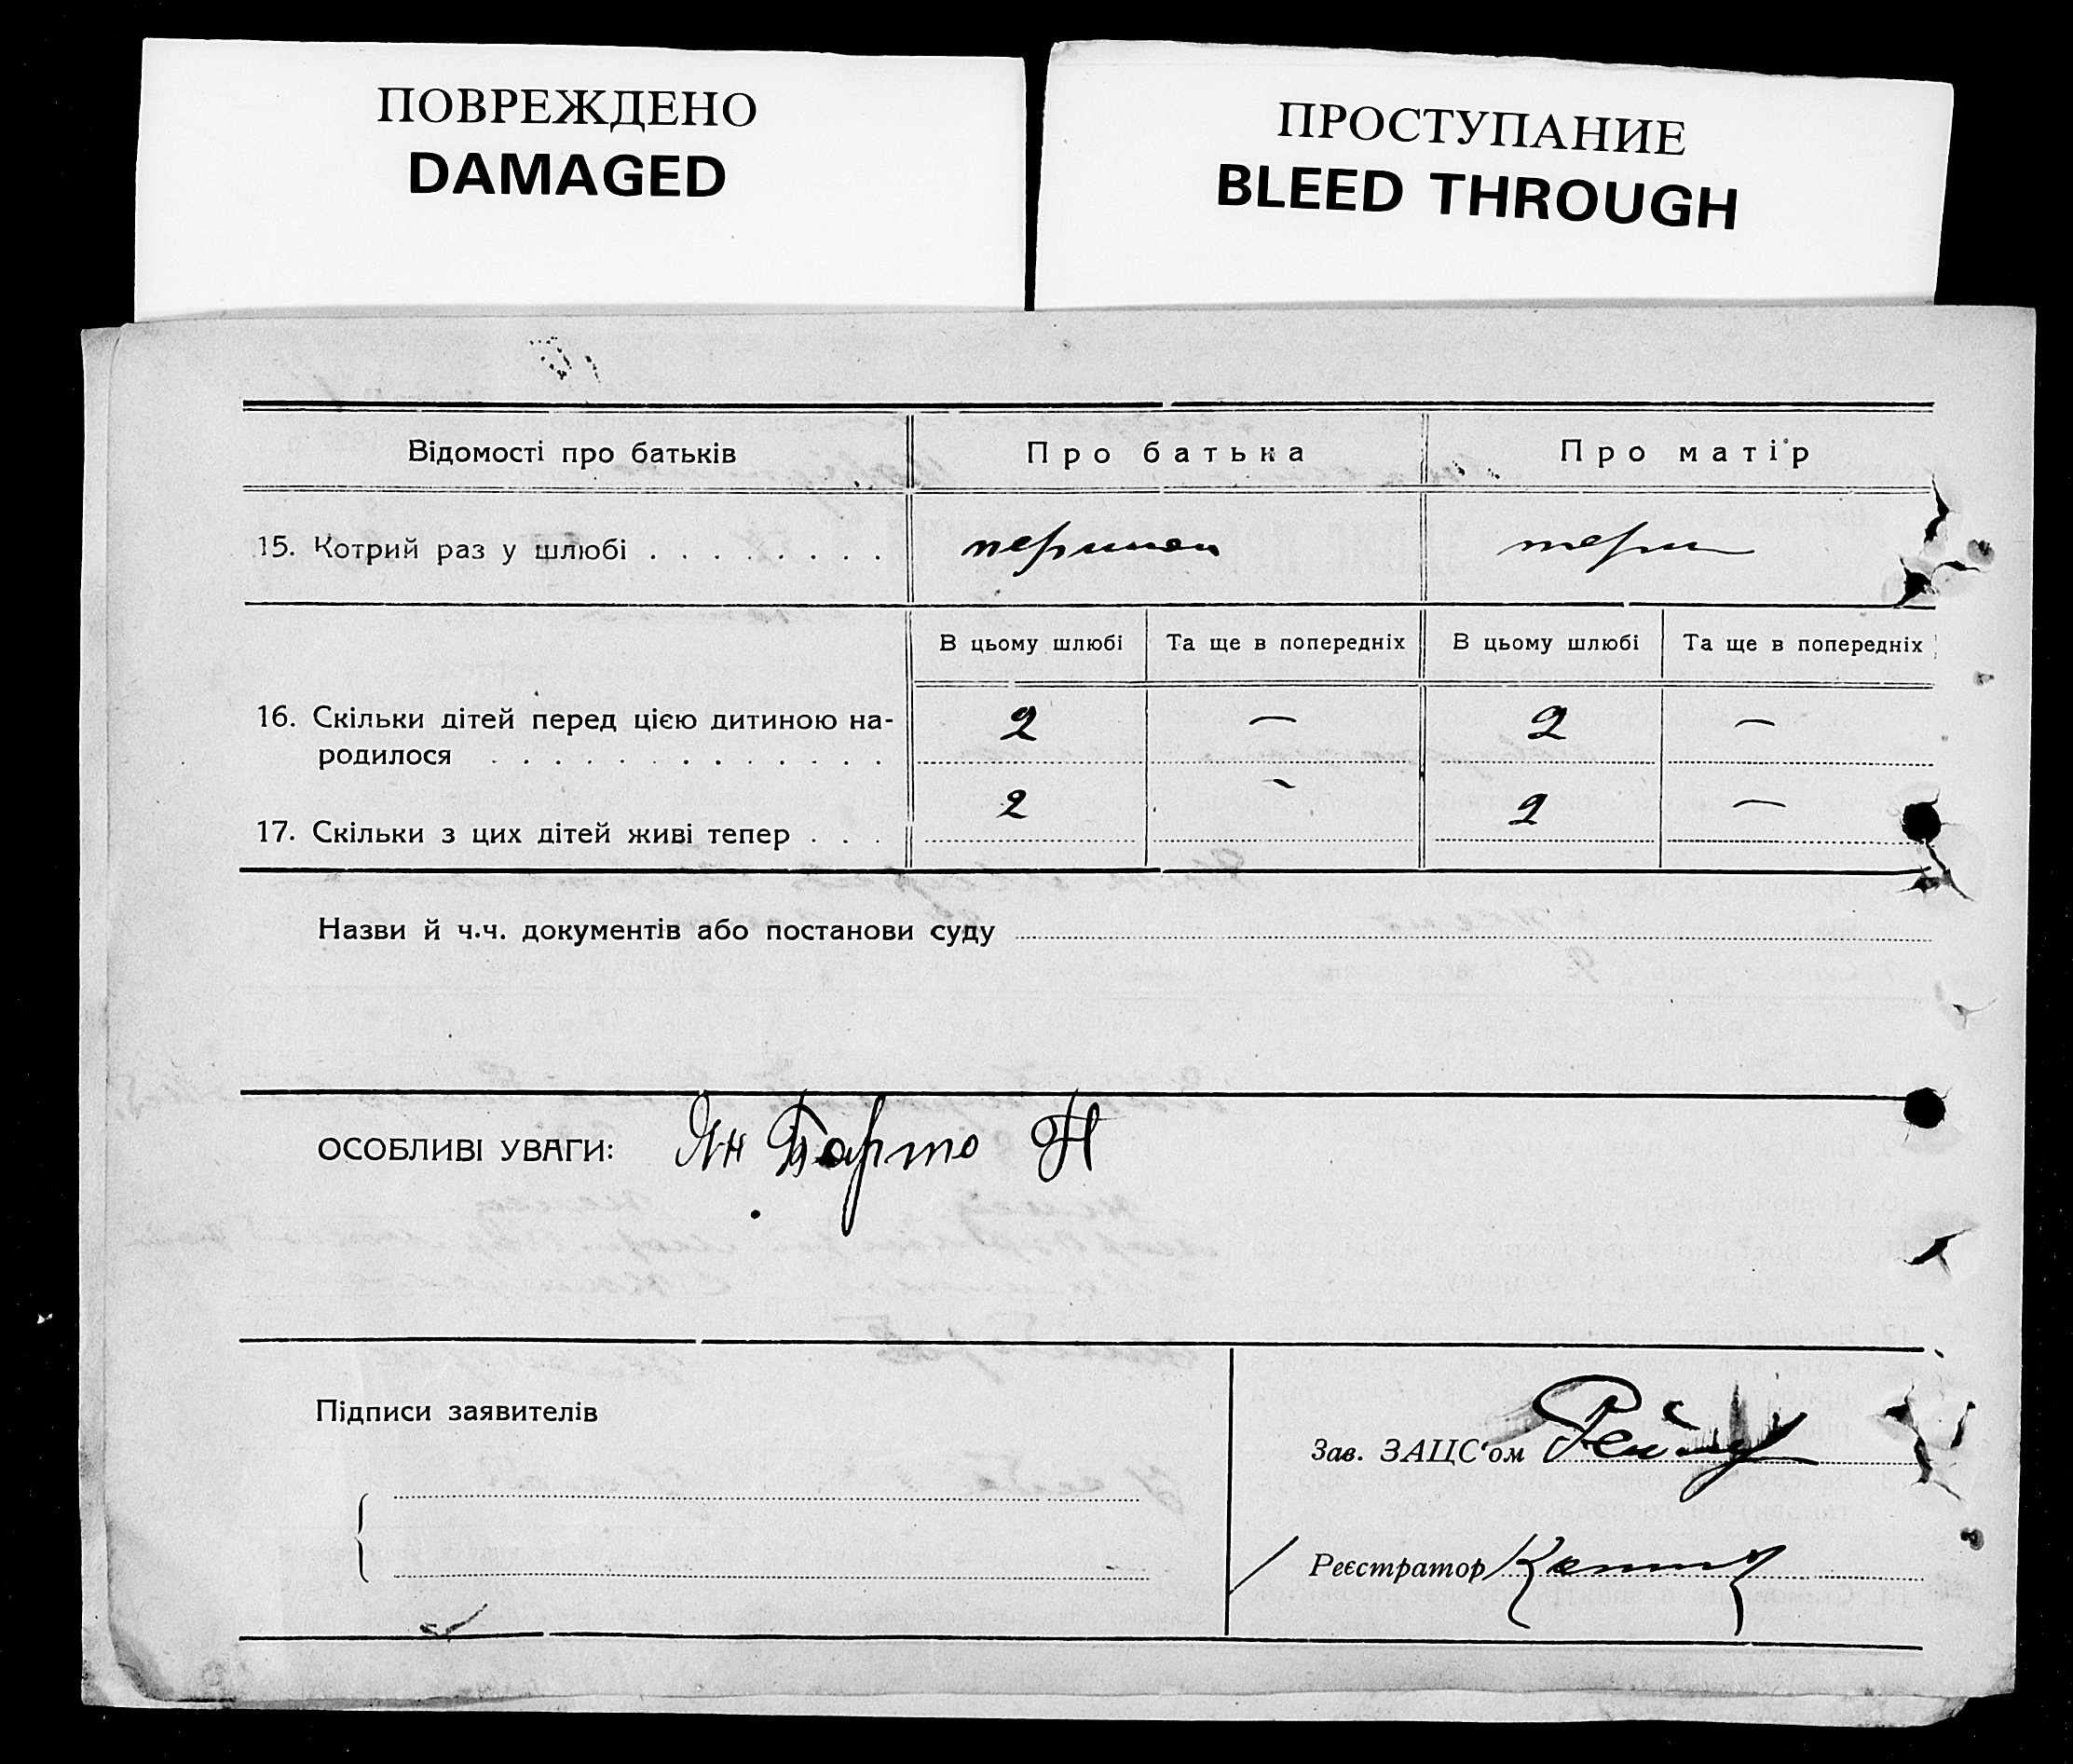 ПОВРЕЖДЕНО
DAMAGED
ПРОСТУПАНИЕ
BLEED THROUGH
Відомості про батьків Про батька Про матір
15. Котрий раз у шлюбі . . . . . . . .
В цьому шлюбі Та ще в попередніх В цьому шлюбі Та ще в попередніх
16. Скільки дітей перед цією дитиною на- 2 — 2 —
родилося . . . . . . . . . . . . .
17. Скільки з цих дітей живі тепер . . . 2 — 2 —
Назви й ч.ч. документів або постанови суду
ОСОБЛИВІ УВАГИ: Ян Барто Н
Підписи заявителів
Зав. ЗАЦС'ом
Реєстратор